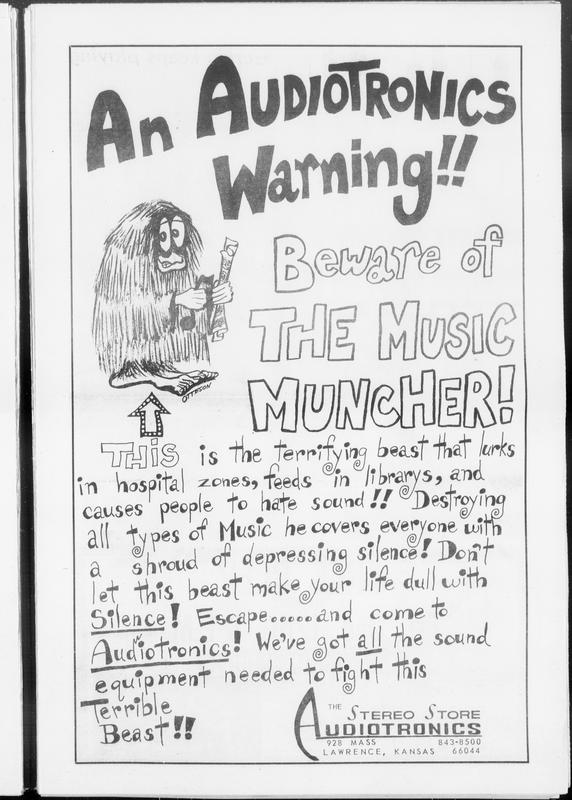 An AUDIOTRONICS
Warning!!
Beware of
THE MUSIC
MUNCHER!
OTTESON
THIS is the terrifying beast that lurks
in hospital zones, feeds in librarys, and
causes people to hate sound!! Destroying
all types of Music he covers everyone with
a shroud of depressing silence! Don't
let this beast make your life dull with
Silence! Escape......and come to
Audiotronics! We've got all the sound
equipment needed to fight this
Terrible
Beast!!
THE STEREO STORE
AUDIOTRONICS
928 MASS 843-8500
LAWRENCE, KANSAS 66044